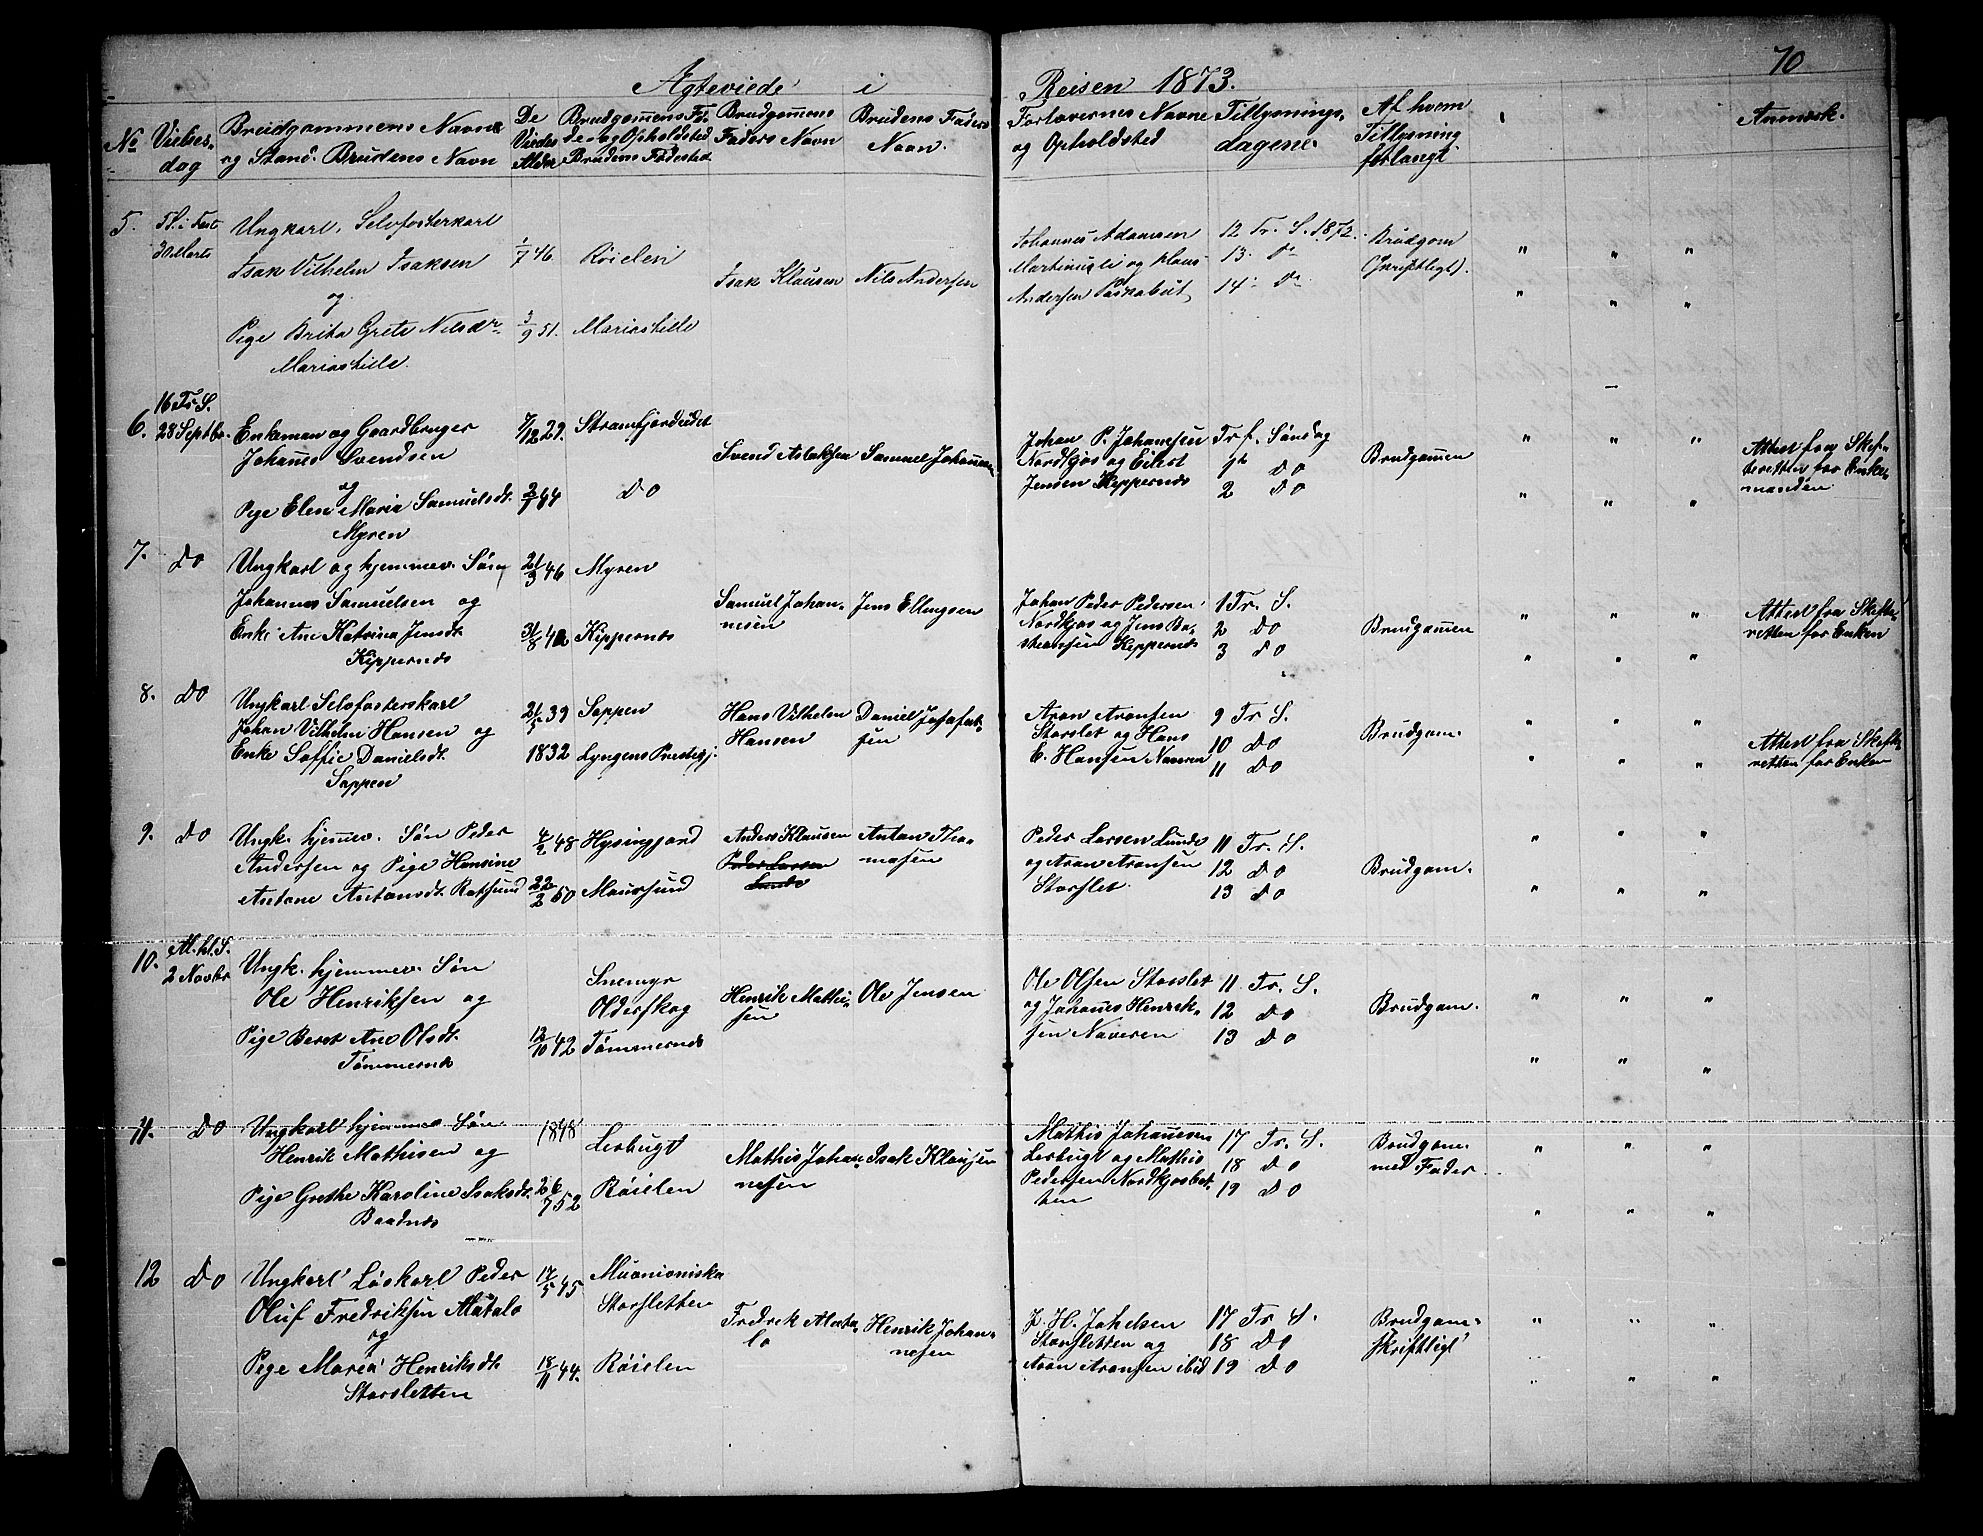 70
Ægteviede i Reisen 1873.
No Vielses-dag Brudgommens Navn og Stand. Brudens Navn De Viedes Alder Brudgommens Fødested og Opholdsted Brudens Fødested Brudgommens Faders Navn Brudens Faders Navn. Forlovernes Navne og Opholdsted Tillysnings-dagene. Af hvem Tillysning forlangt Anmærk.
5. 5 S. i Fast
30 Marts
Ungkarl, Selvfosterkarl
Isak Vilhelm Isaksen
og
Pige Brita Grete Nilsdr
Mariastille.
1/7 46.
3/9 51.
Røielen
Mariastille
Isak Klausen
Nils Andersen
Johannes Adamsen
Martinusli og Klaus
Andersen
12 Tr. S. 1872.
13. Do
14. Do
Brudgom
(Skriftligt).
6. 16 Tr. S.
28 Septbr.
Enkeman og Gaardbruger
Johanes Svendsen
og
Pige Elen Maria Samuelsdt.
Myren
7/12 29.
2/7 44
Straumfjordeidet
Do
Svend Aslaksen
Samuel Johannes
Johan P. Johansen
Nordkjos og Eilert
Jensen Kippernæs
Tr. f. Søndag
1ste Do
2 Do
Brudgammen
Attest fra Skif-
teretten for Enke-
manden
7. Do
Ungkarl og hjemmev. Søn
Johannes Samuelsen og
Enke Ane Katrina Jensdt.
Kippernæs
21/3 46
31/8 42
Myren
Kippernæs
Samuel Johan-
nesen
Jens Ellingsen
Johan Peder Pedersen
Nordkjos og Jens Ba-
stiansen Kippernæs
1 Tr. S.
2 Do
3 Do
Brudgammen
Attest fra Skifte-
retten for Enken
8. Do
Ungkarl Selvfosterskarl
Johan Vilhelm Hansen og
Enke Soffie Danielsdt.
Sappen
21/5 39
1832
Sappen
Lyngens Prestegj.
Hans Vilhelm
Hansen
Daniel Josafat-
sen
Aron Aronsen
Storslet og Hans
E. Hansen Naveren
9 Tr. S.
10 Do
11 Do
Brudgom.
Attest fra Skifte-
retten for Enken
9. Do
Ungk. hjemmev. Søn Peder
Andersen og Pige Hansine
Antone Antonsdt. Rotsund
4/2 48
22/2 50
Hysingjord
Maursund
Anders Klausen
Peder Larsen
Lunde
Antan Tho-
masen
Peder Larsen Lunde
og Aron Aronsen
Storslet.
11 Tr. S.
12 Do
13 Do
Brudgom.
10. Al. hl. S.
2 Novbr
Ungk. hjemmev. Søn
Ole Henriksen og
Pige Beret Ane Olsdt.
Tømmernæs
12/10 42
Snemyr
Olderskog
Tømmernæs
Henrik Mathi-
sen
Ole Jensen
Ole Olsen Storslet
og Johanes Henrik-
sen Naveren
11 Tr. S.
12 Do
13 Do
Brudgom.
11. Do
Ungkarl hjemmev Søn
Henrik Mathisen og
Pige Grethe Karoline Isaksdt.
Baadnæs
1848
26/7 52
Lerbugt
Røielen
Mathis Johan-
nesen
Isak Klausen
Mathis Johanesen
Lerbugt og Mathis
Pedersen Nordkjosbot-
ten
17 Tr. S.
18 Do
19 Do
Brudgom.
med Fader
12 Do
Ungkarl Løskarl Peder
Oluf Fredriksen Alatalo
og
Pige Maria Henriksdt.
Storsletten
17/5 45
18/11 44.
Muonioniska
Storsletten
Røielen
Fredrek Alata-
lo
Henrik Johan-
nesen
J. H. Johelsen
Storsletten og
Aron Aronsen ibid
17 Tr. S.
18 Do
19 Do
Brudgom.
skriftligt